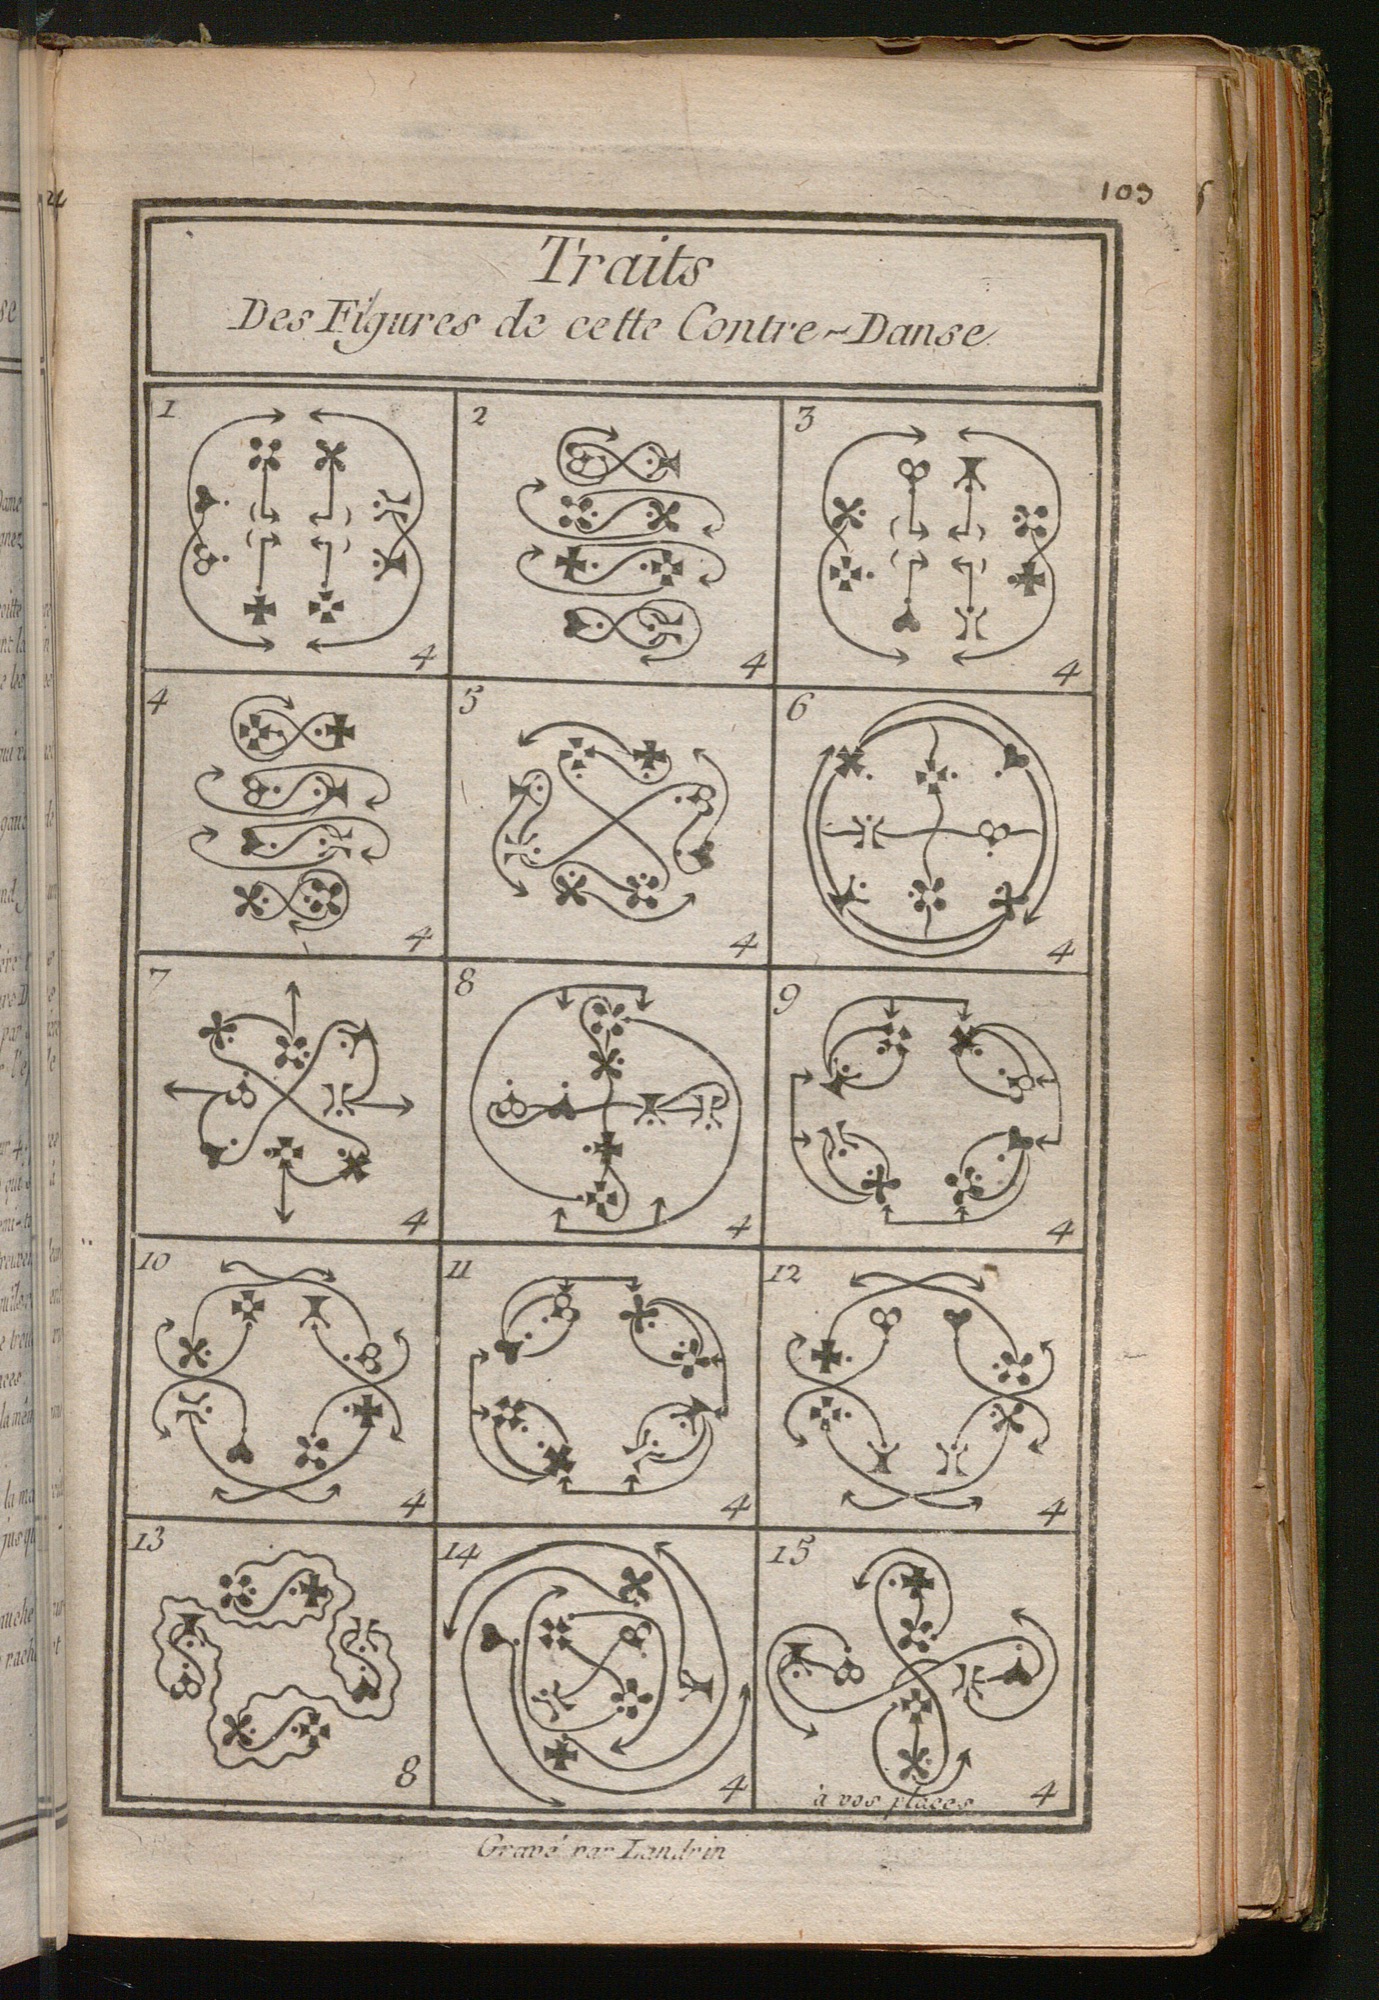 109
Traits
Des Figures de cette Contre-Danse.
1
4
2
4
3
4
4
4
5
4
6
4
7
4
8
4
9
4
10
4
11
4
12
4
13
8
14
4
15
à vos places
4
Gravé par Landrin